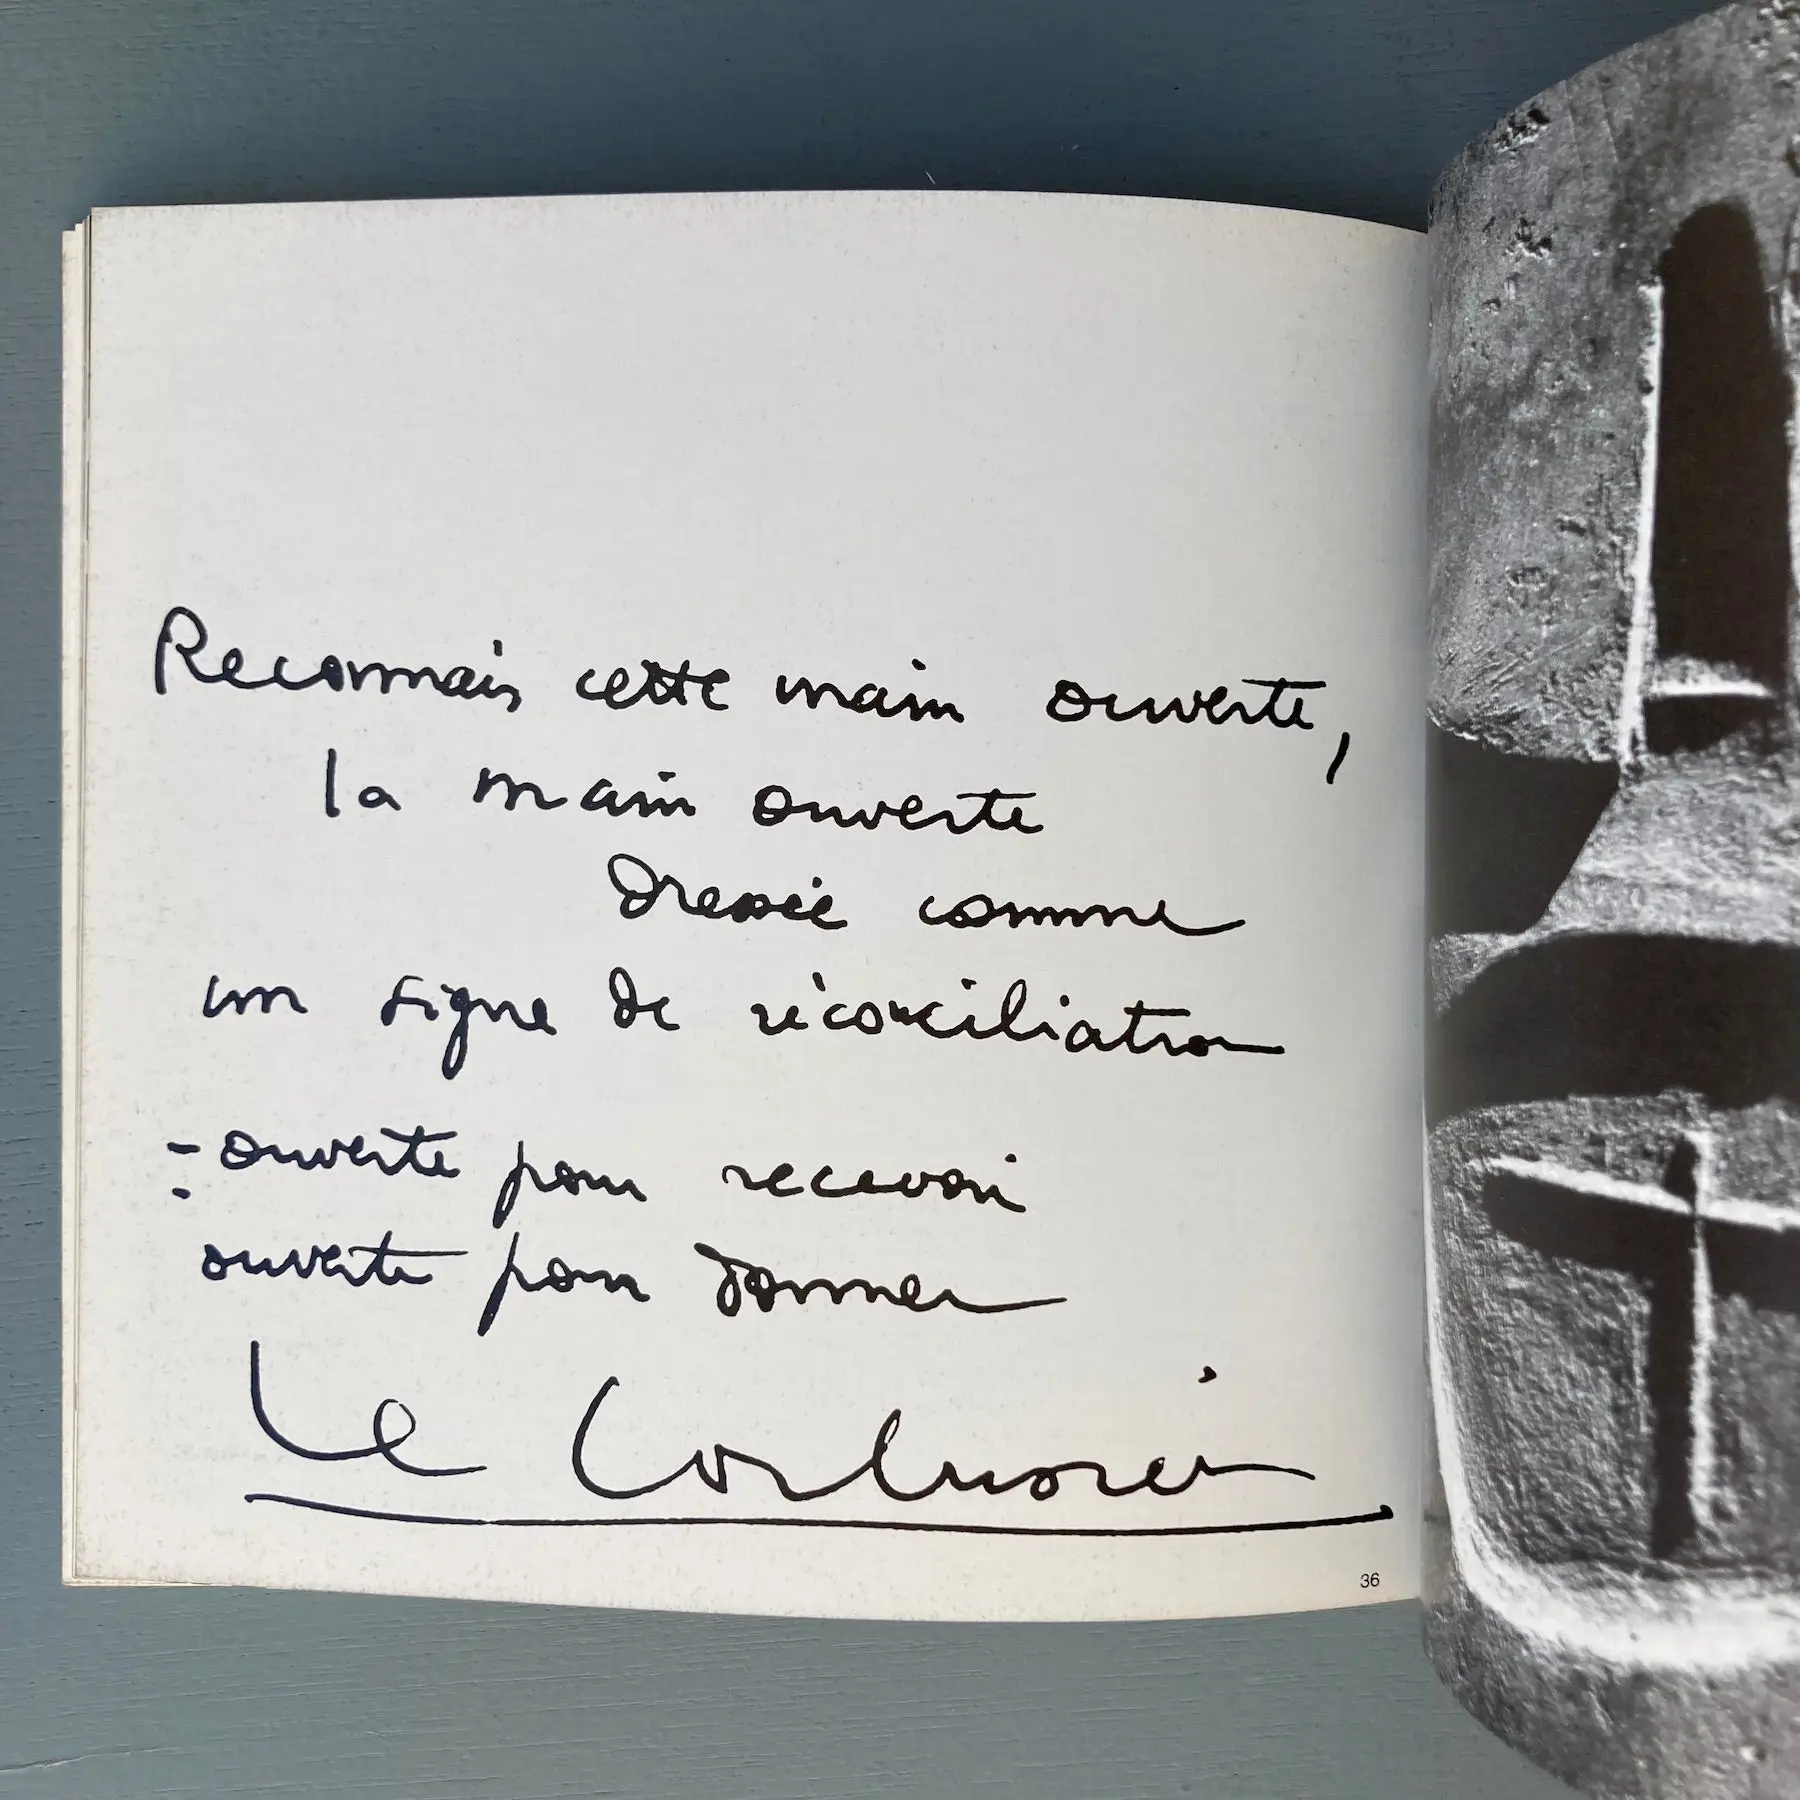 Reconnais cette main ouverte,
la main ouverte
Dressée comme
un signe de réconciliation
- ouverte pour recevoir
ouverte pour donner
Le Corbusier
36